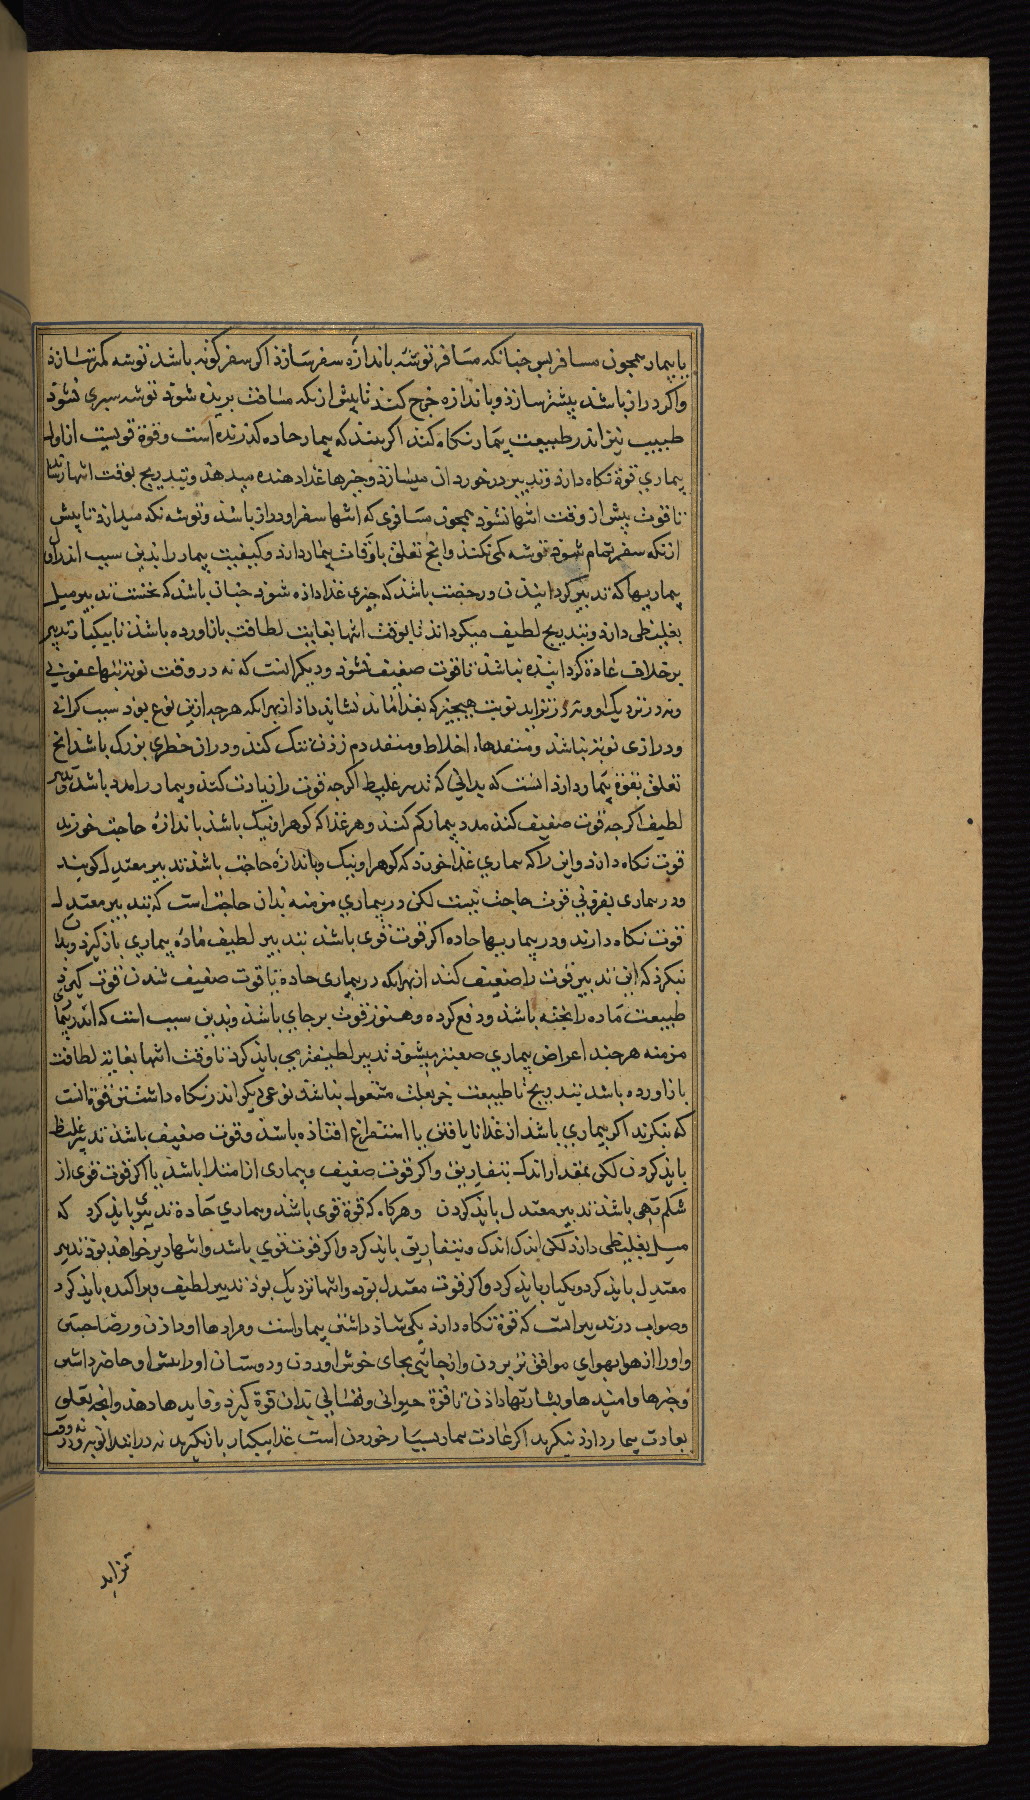 با بیمار همجون مسافر بس جنانکه مسافر توشه باندازه سفر سازذ اکر سفر کوته باشد توشه کمتر سازذ
واکر دراز باشد بیشتر سازذ وباندازه خرج کند تا بیش ازنکه مسافت بریده شوذ توشه سبری نشوذ
طبیب نیز اندر طبیعت بیمار نکاه کند اکر بیند که بیمار حاده کذرنده است وقوة قویست از اول
بیماری قوة نکاه دارذ وتدبیر در خورد ان میسازذ وجیزها غذا دهنده میدهذ وبتدریج بوقت انتها رساند
تا قوت بیش از وقت انتها نشوذ همجون مسافری که انتها سفر او دراز باشذ وتوشه نکه میدارذ تا بیش
ازنکه سفر تمام شوذ توشه کمی نکند وانج تعلق باوقات بیمار دارذ وکیفیت بیمار را بدین سبب اندر اول
بیماریها که تدبیر کردانیذن ورخصت باشذ که جیزی غذا داذه شوذ جنان باشذ که نخست تدبیر میل
بغلیظی دارذ وبتدریج لطیف میکرداند تا بوقت انتها بغایت لطافت بازاورده باشذ تا بیکبار تدبیر
برخلاف عادة کردانیده نباشد تا قوت ضعیف نشوذ ودیکر انست که نه در وقت نوبة تبها عفونی
ونه در نزدیک او ونه در تزاید نوبت هیجیز که بغذا ماند نشاید داذ ازبهرانکه هرجه ازین نوع بوذ سبب کرانی
ودرازی نوبة باشذ ومنفذهاء اخلاط ومنفذ دم زذن تنک کند ودران خطری بزرک باشذ انج
تعلق بقوة بیمار دارذ انست که بدانی که تدبیر غلیظ اکرجه قوت را زیادت کند وبیمار را مدد باشذ وتدبیر
لطیف اکرجه قوت ضعیف کند مدد بیمار کم کند وهر غذا که کوهر او نیک باشذ باندازه حاجت خورند
قوت نکاه دارذ واین را که بیماری غذا خورد که کوهر او نیک وباندازه حاجت باشذ تدبیر معتدل کویند
ودر بیماری بفزونی قوت حاجت نیست لکن در بیماری مزمنه بدان حاجت است که بتدبیر معتدل
قوت نکاه دارند ودر بیماریها حاده اکر قوت قوی باشد بتدبیر لطیف ماده بیماری باز کیرذ وبدان
ننکرذ که این تدبیر قوت را ضعیف کند ازبهرانکه در بیماری حاده تا قوت ضعیف شدن قوت کیرذ
طبیعت ماده را بخته باشذ ودفع کرده وهنوز قوت برجای باشذ وبدین سبب است که اندر بیماری
مزمنه هرجند اعراض بیماری صعبتر میشوذ تدبیر لطیفتر می بایذ کرد تا وقت انتها بغایة لطافت
بازاورده باشد بتدریج تا طبیعت جز بعلت مشغول نباشذ نوعی دیکر اندر نکاه داشتن قوة انست
که بنکرند اکر بیماری باشذ از غذا نایافتن یا استفراغ افتاذه باشذ وقوت ضعیف باشذ تدبیر غلیظ
بایذ کردن لکن بمقدار اندک بتفاریق واکر قوت ضعیف وبیماری از امتلا باشذ یا اکر قوت قوی از
شکم تهی باشذ تدبیر معتدل بایذ کردن وهرکاه که قوة قوی باشذ وبیماری حاده تدبیری بایذ کرد که
میل بغلیظی دارذ لکن اندک اندک وبتفاریق بایذ کرد واکر قوت قوی باشد وانتها دیر خواهذ بوذ تدبیر
معتدل بایذ کرد وبکبار بایذ کرد واکر قوت معتدل بوذ وانتها نزدیک بوذ تدبیر لطیف وبراکنده بایذ کرد
وصواب در تدبیر انست که قوة نکاه دارذ یکی شاذ داشتن بیمار است ومرادها او داذن ورضا جستن
واورا از هوا بهوای موافق تر بردن واز جائی بجای خوش اوردن ودوستان اورا بیش او حاضر داشتن
وخبرها وامیدها وبشارتها داذن تا قوة حیوانی ونفسانی بدان قوة کیرذ وفایدها دهذ وانجه تعلق
بعادت بیمار دارذ بنکرید اکر عادت بیمار بسیار خوردن است غذا بیکبار بازنکیرید نه در ابتدا نوبه ونه در وقت
تزاید